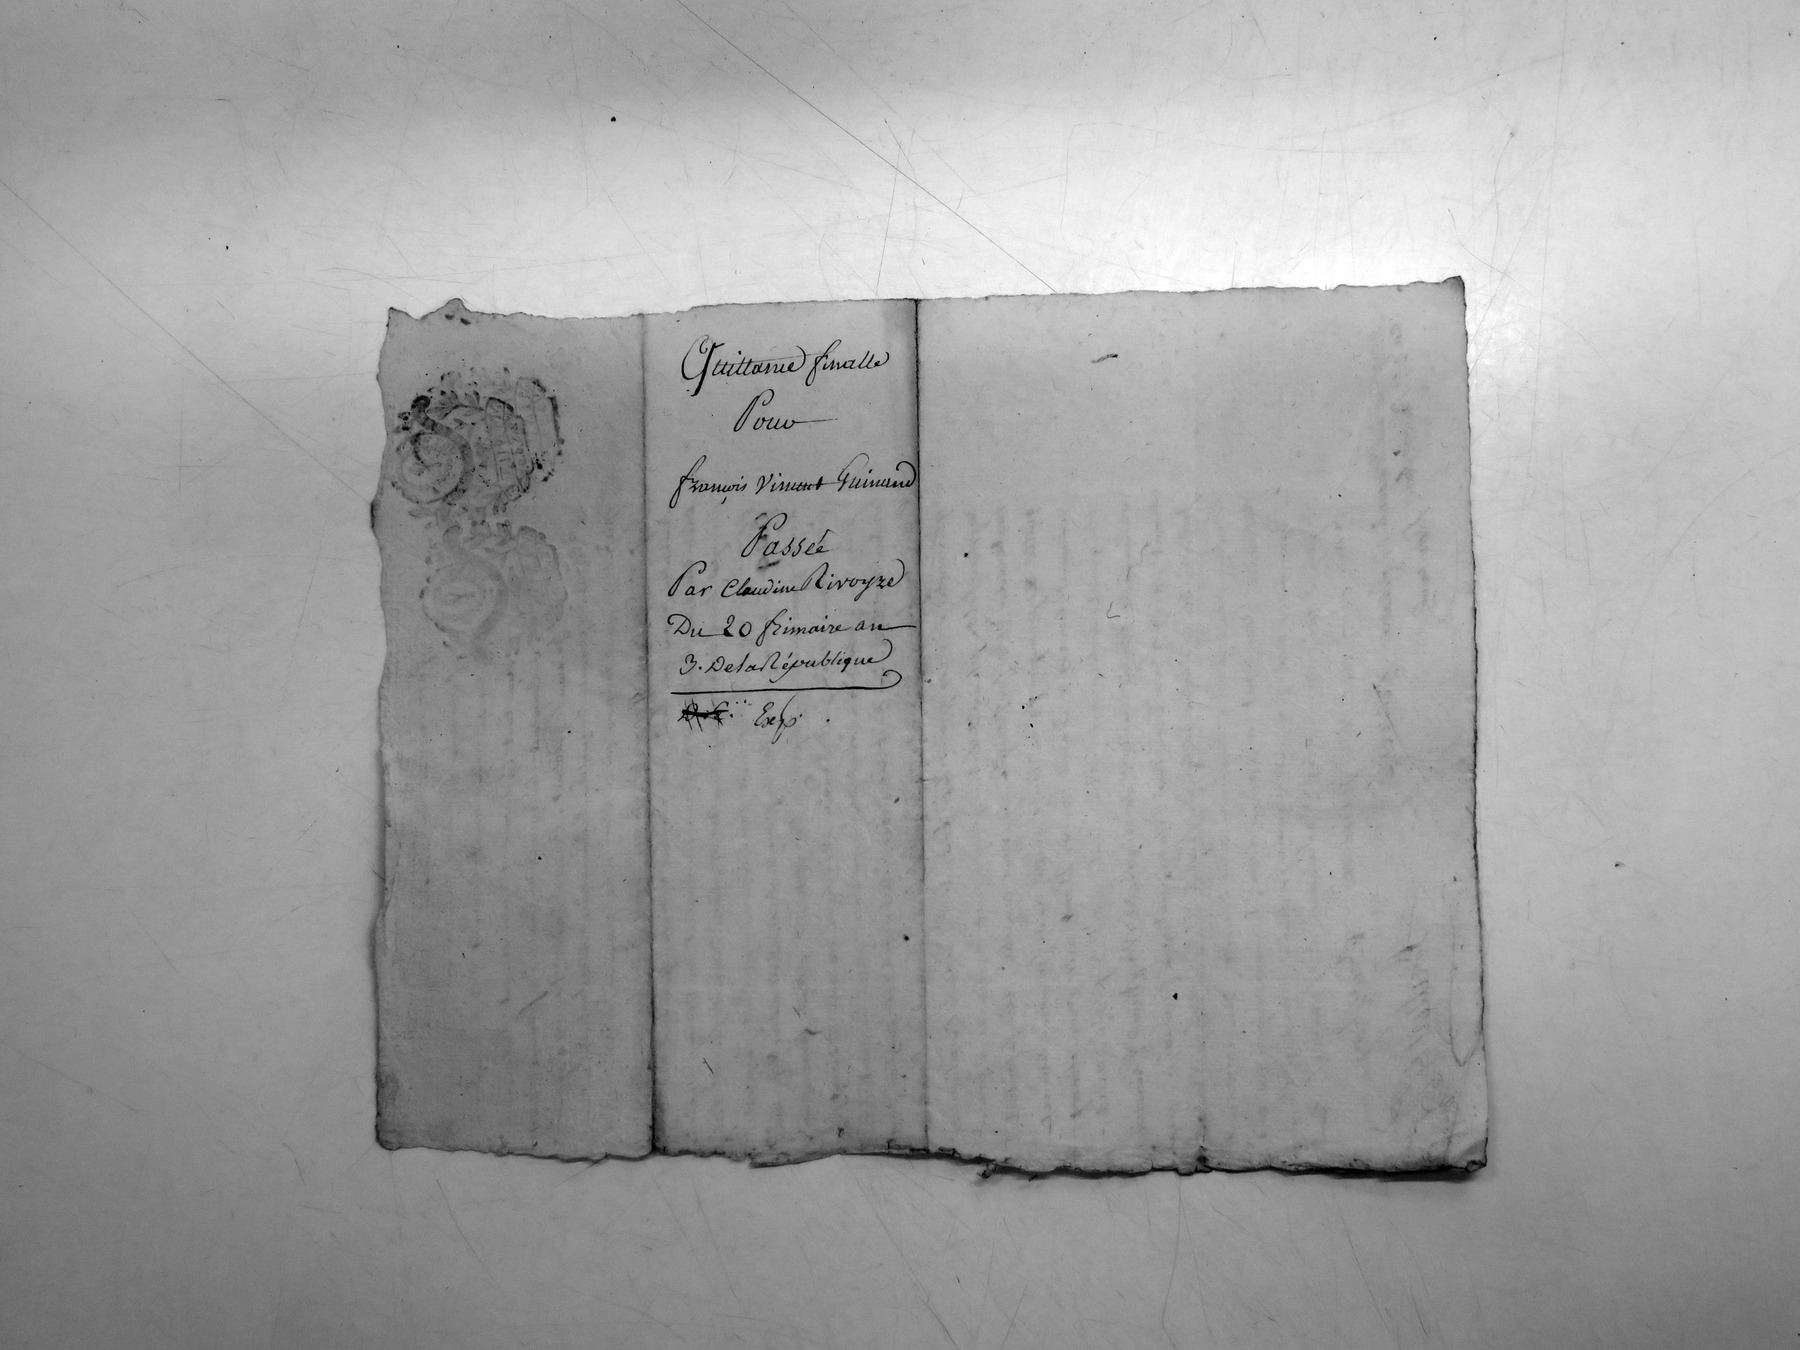 Quittance finalle
Pour
françois Vincent Guinand
Passée
Par Claudine Rivoyre
Du 20 frimaire an
3. De la République
Exp.